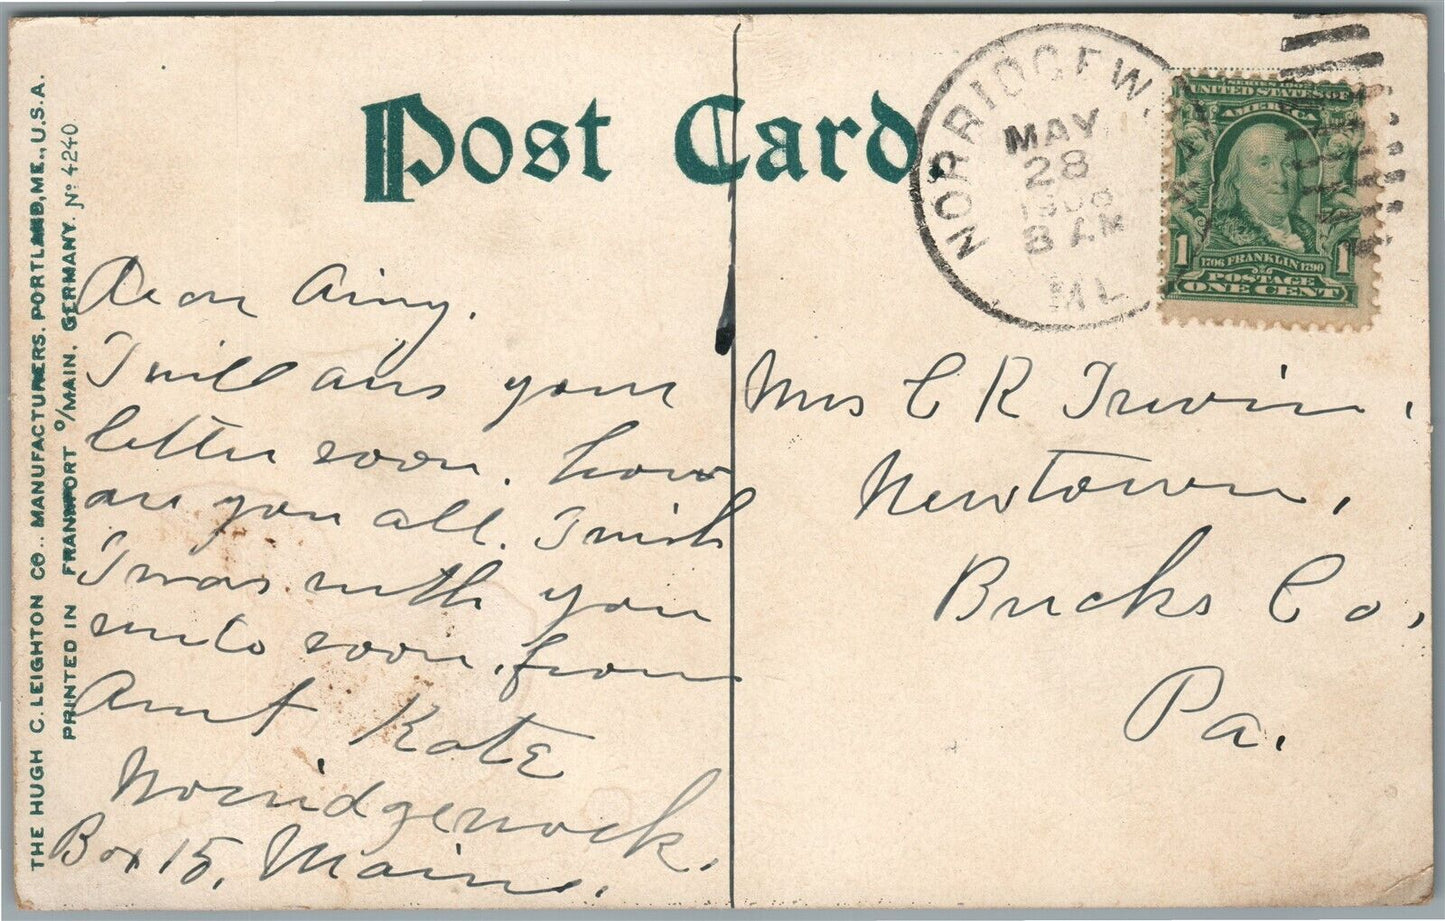 Post Card
THE HUGH C. LEIGHTON CO., MANUFACTURERS, PORTLAND, ME., U.S.A.
PRINTED IN FRANKFORT o/MAIN, GERMANY. No 4240
NORRIDGEW
MAY
28
1908
8 AM
ME
UNITED STATES OF
AMERICA
1 1706 FRANKLIN 1790 1
POSTAGE
ONE CENT
Dear Amy.
I will ans your
letter soon. how
are you all. I wish
I was with you
unto soon. from
Aunt Kate
Norridgewock.
Box 15, Maine.
Mrs C R Irwin.
Newtown,
Bucks Co,
Pa.